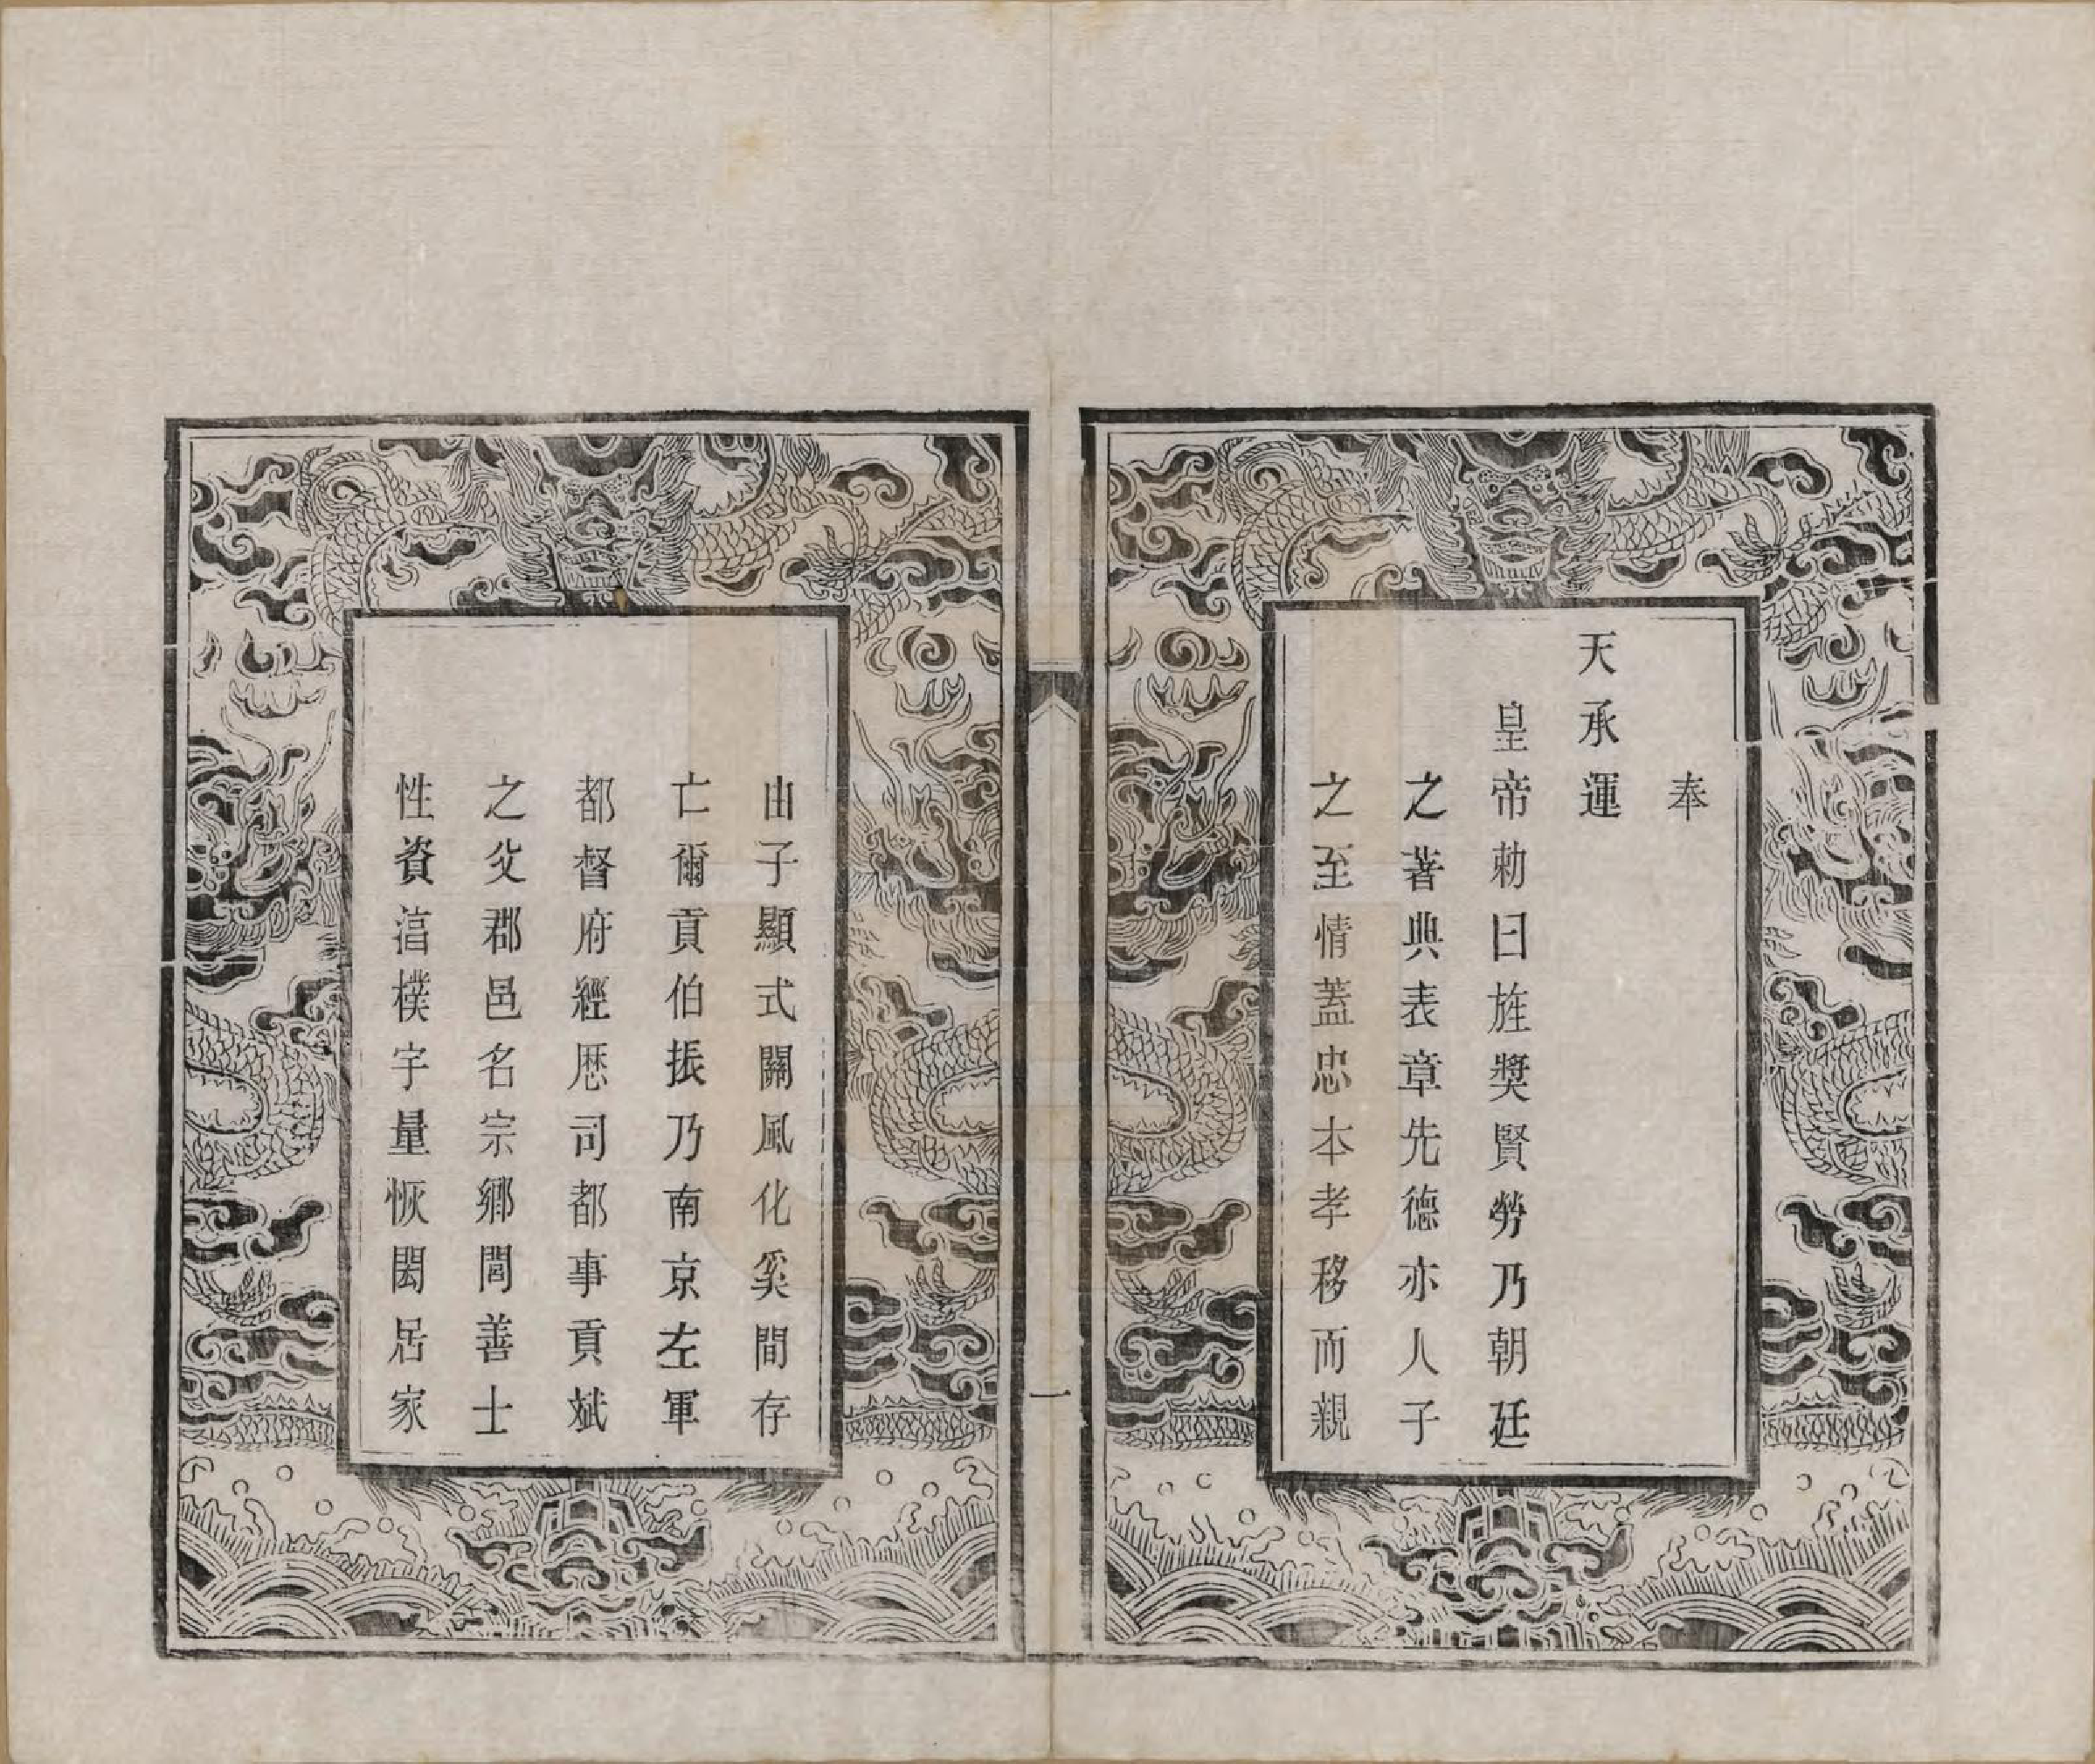 奉
天承運
皇帝勅曰旌奬賢勞乃朝廷
之著典表章先德亦人子
之至情蓋忠本孝移而親
由子顯式關風化奚間存
亡爾貢伯振乃南京左軍
都督府經歷司都事貢斌
之父郡邑名宗鄉閭善士
性資湻樸宇量恢閎居家
一